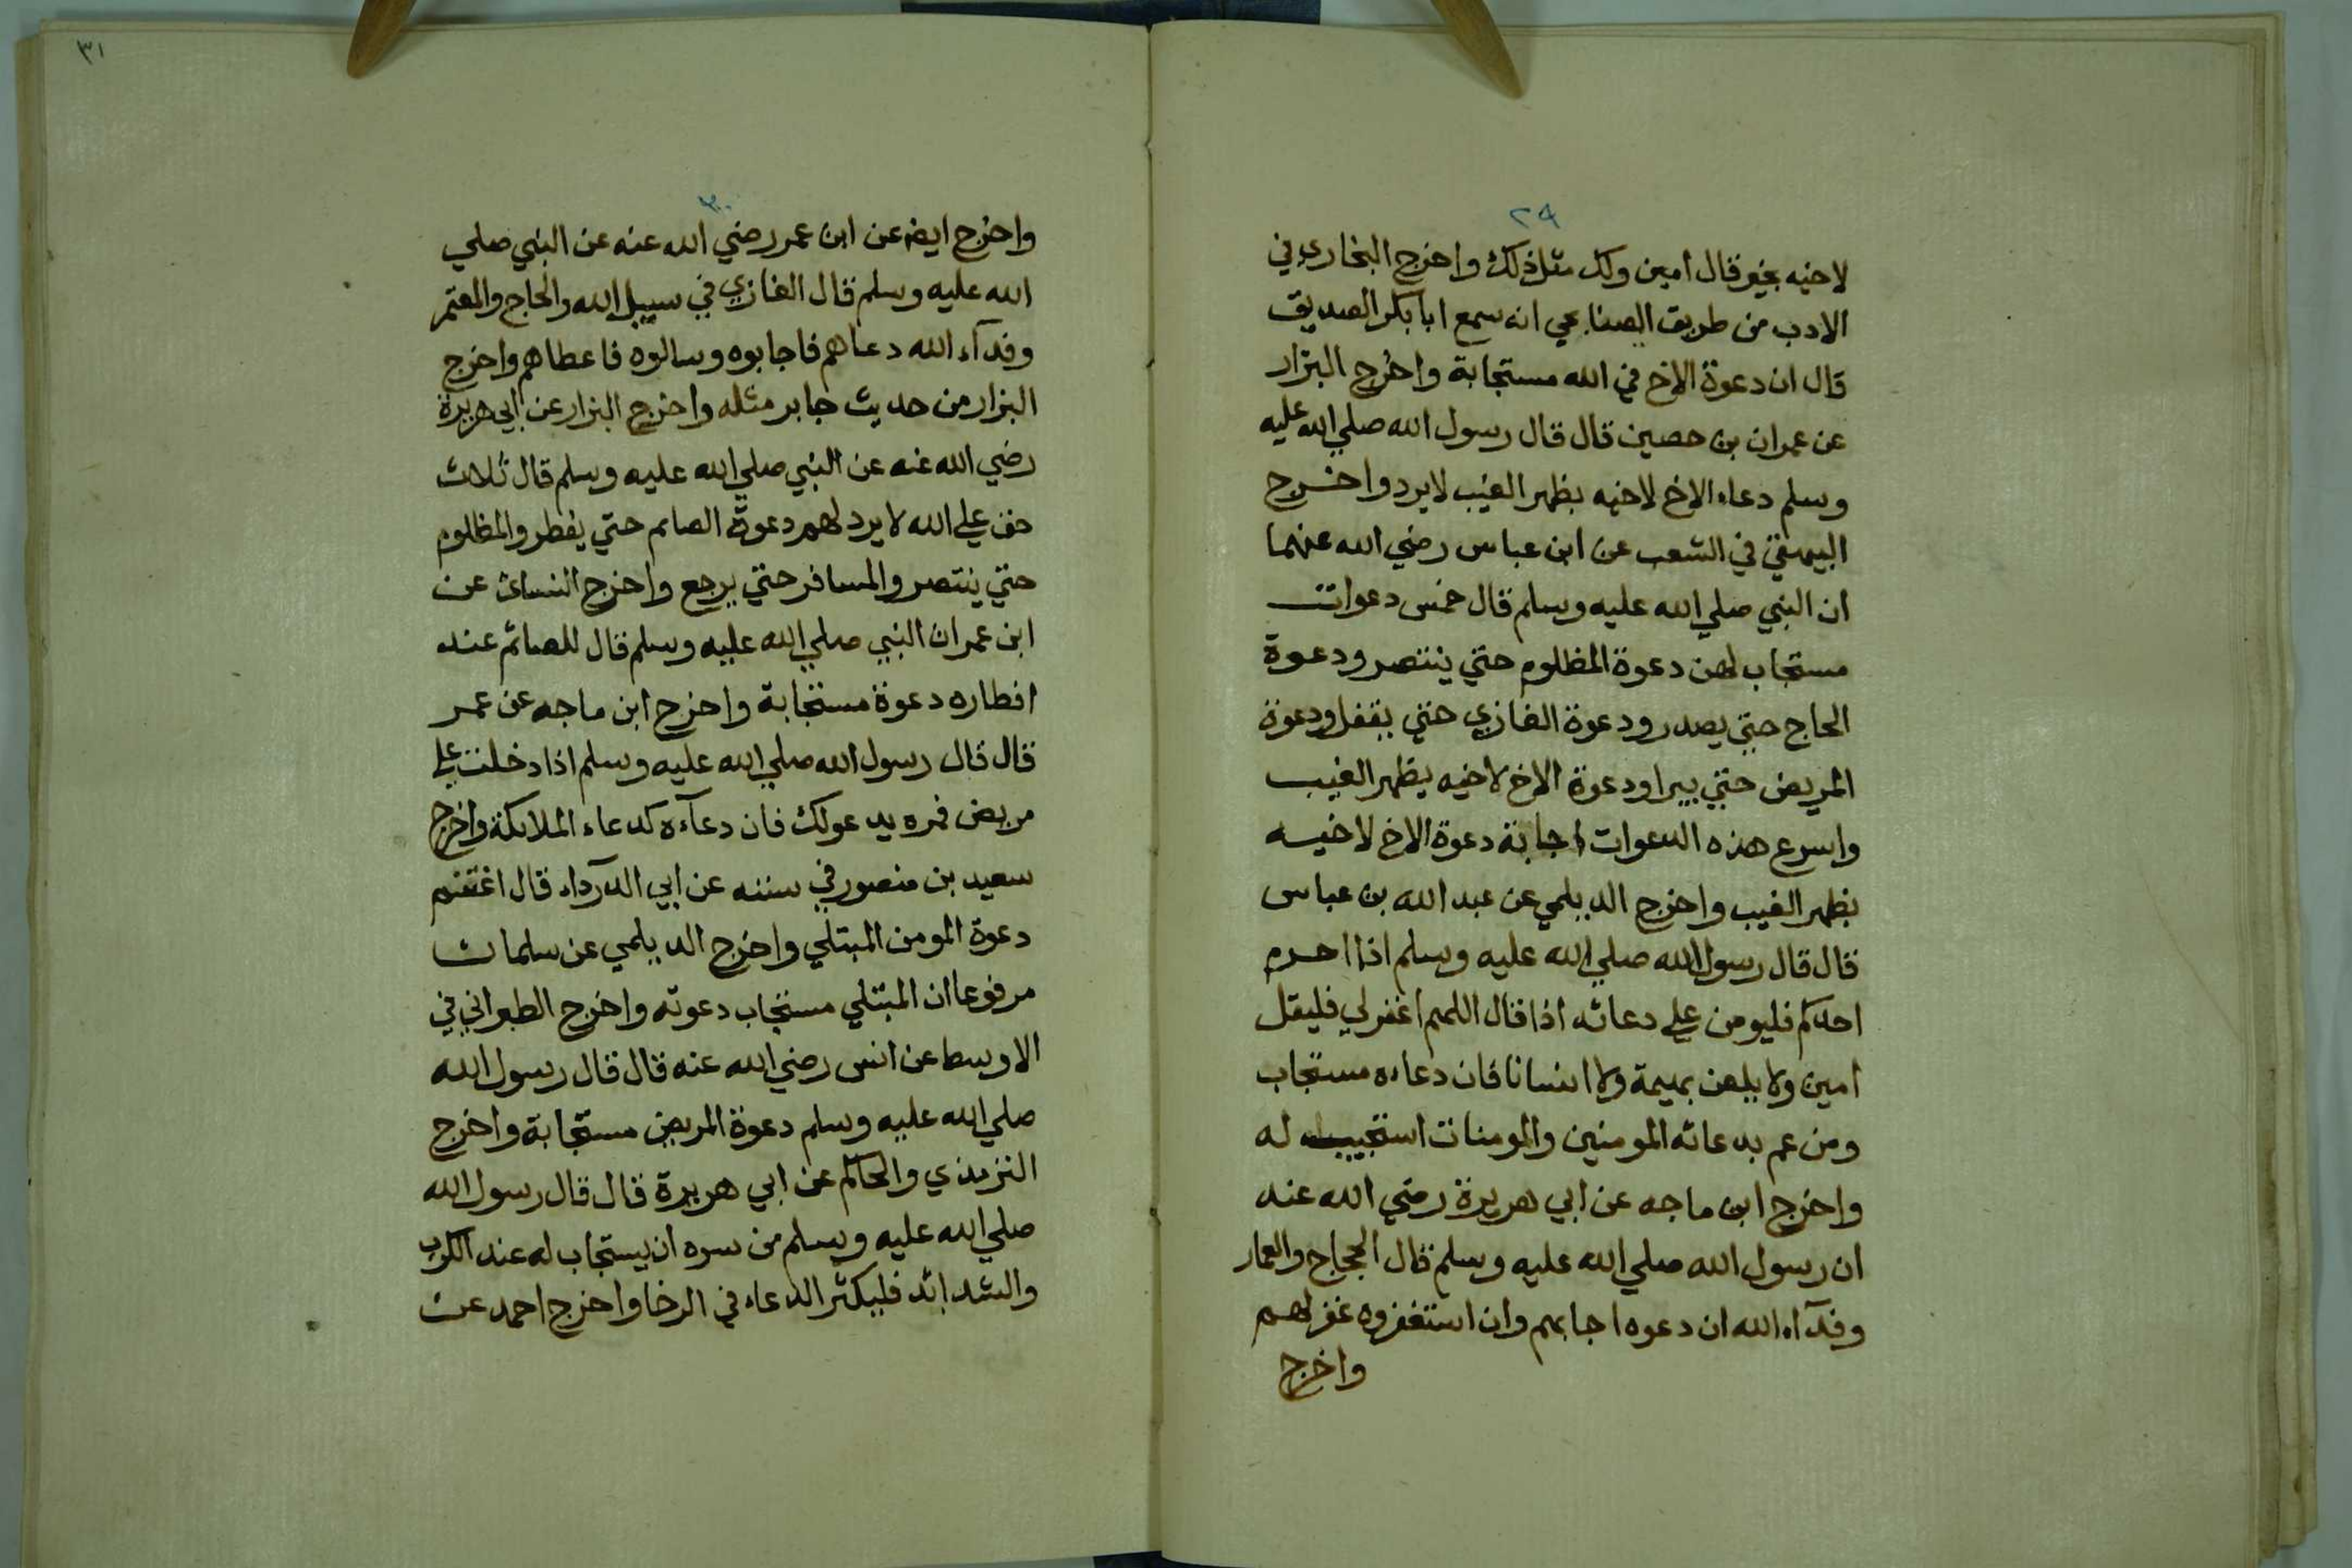 ٢٩
لاخيه بخير قال امين ولك مثل ذلك واخرج البخاري في
الادب من طريق الصنابحي انه سمع ابا بكر الصديق
قال ان دعوة الاخ في الله مستجابة واخرج البزار
عن عمران بن حصين قال قال رسول الله صلي الله عليه
وسلم دعاء الاخ لاخيه بظهر الغيب لا يرد واخرج
البيهقي في الشعب عن ابن عباس رضي الله عنهما
ان النبي صلي الله عليه وسلم قال خمس دعوات
مستجاب لهن دعوة المظلوم حتي ينتصر ودعوة
الحاج حتي يصدر ودعوة الغازي حتي يقفل ودعوة
المريض حتي يبرا ودعوة الاخ لاخيه بظهر الغيب
واسرع هذه الدعوات اجابة دعوة الاخ لاخيه
بظهر الغيب واخرج الديلمي عن عبد الله بن عباس
قال قال رسول الله صلي الله عليه وسلم اذا احرم
احدكم فليومن علي دعائه اذا قال اللهم اغفر لي فليقل
امين ولا يلعن بهيمة ولا انسانا فان دعاءه مستجاب
ومن عم بدعائه المومنين والمومنات استجيب له
واخرج ابن ماجه عن ابي هريرة رضي الله عنه
ان رسول الله صلي الله عليه وسلم قال الحجاج والعمار
وفدآء الله ان دعوه اجابهم وان استغفروه غفر لهم
واخرج
٣١
٣٠
واخرج ايض عن ابن عمر رضي الله عنه عن النبي صلي
الله عليه وسلم قال الغازي في سبيل الله والحاج والمعتمر
وفدآء الله دعاهم فاجابوه وسالوه فاعطاهم واخرج
البزار من حديث جابر مثله واخرج البزار عن ابي هريرة
رضي الله عنه عن النبي صلي الله عليه وسلم قال ثلاث
حق علي الله لا يرد لهم دعوة الصائم حتي يفطر والمظلوم
حتي ينتصر والمسافر حتي يرجع واخرج النسائ عن
ابن عمر ان النبي صلي الله عليه وسلم قال للصائم عند
افطاره دعوة مستجابة واخرج ابن ماجه عن عمر
قال قال رسول الله صلي الله عليه وسلم اذا دخلت علي
مريض فمره يدعو لك فان دعآءه كدعاء الملائكة واخرج
سعيد بن منصور في سننه عن ابي الدرداء قال اغتنم
دعوة المومن المبتلي واخرج الديلمي عن سلمان
مرفوعا ان المبتلي مستجاب دعوته واخرج الطبراني في
الاوسط عن انس رضي الله عنه قال قال رسول الله
صلي الله عليه وسلم دعوة المريض مستجابة واخرج
الترمذي والحاكم عن ابي هريرة قال قال رسول الله
صلي الله عليه وسلم من سره ان يستجاب له عند الكرب
والشدائد فليكثر الدعاء في الرخا واخرج احمد عن